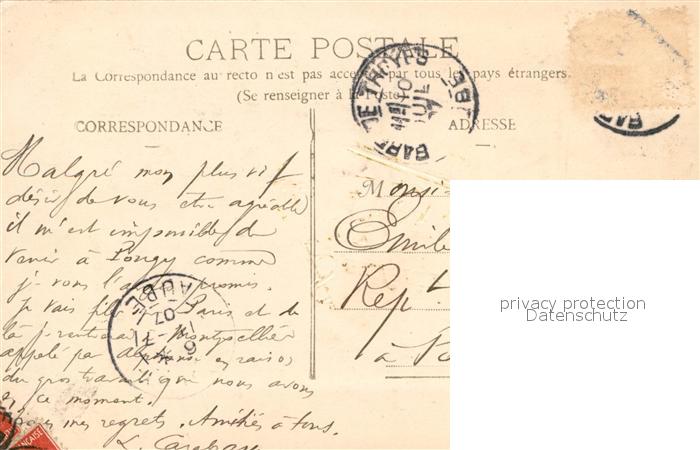 CARTE POSTALE
La Correspondance au recto n'est pas acceptée par tous les pays étrangers
(Se renseigner à la Poste)
CORRESPONDANCE
ADRESSE
Malgré mon plus vif
désir de vous être agréable
il m'est impossible de
venir à Pougy comme
je vous l'avais promis.
Je vais filer Paris et de
là rentrer Montpellier
appelé par Alphonse en raison
du gros travail que nous avons
en ce moment.
mes regrets. Amitiés à tous.
Monsi
Emile
Rept.
à Po
GARE DE TROYES
10
JUIL
AUBE
07
privacy protection
Datenschutz